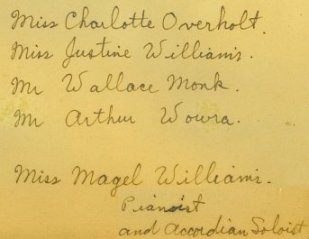 Miss Charlotte Overholt.
Miss Justine Williams.
Mr Wallace Monk.
Mr Arthur Wowra.
Miss Magel Williams.
Pianoist
and Accordian Soloist